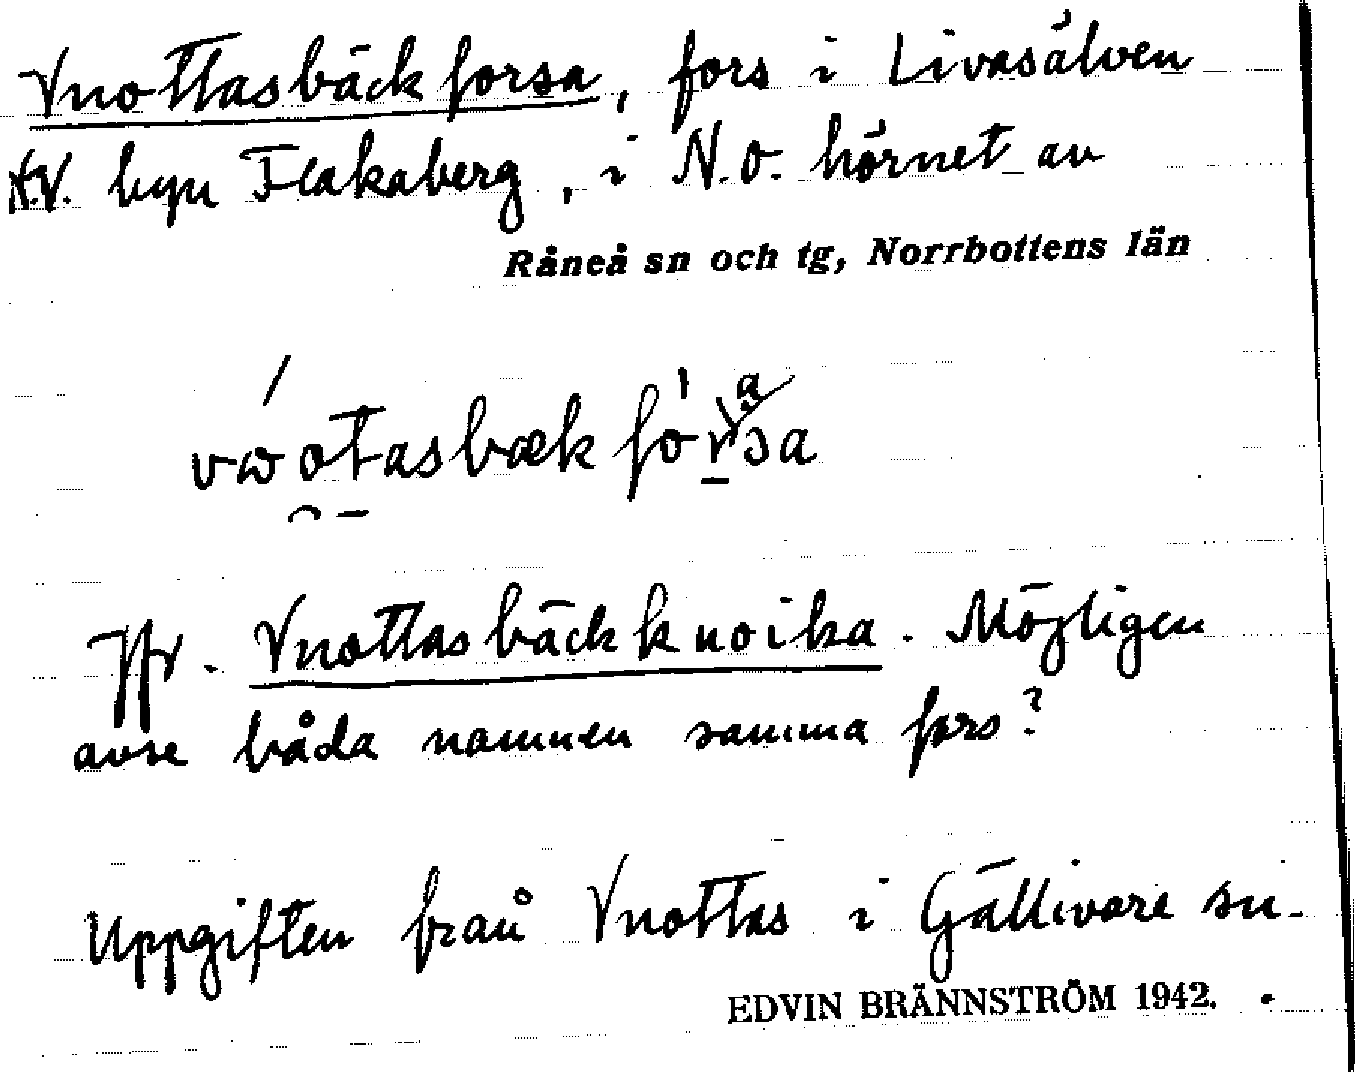 Vuottasbäckforsa, fors i Livasälven
N.V. byn Flakaberg, i N.O. hörnet av
Råneå sn och tg, Norrbottens län
Jfr. Vuottasbäckknoika. Möjligen
avse båda namnen samma fors?
Uppgiften från Vuottas i Gällivare sn.
EDVIN BRÄNNSTRÖM 1942.